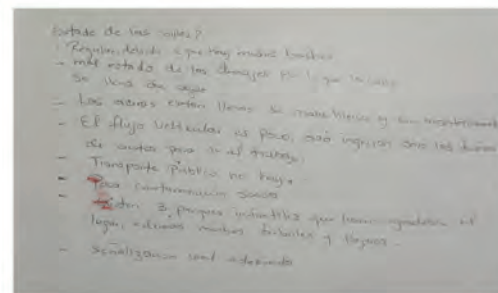 Estado de las calles?
Regular, debido a que hay muchos baches
- mal estado de los drenajes por lo que la calle
se llena de agua
- Las aceras están llenas de maleza y sin mantenimiento
- El flujo vehicular es poco, solo ingresan son los dueños
de autos para ir al trabajo.
- Transporte público no hay.
- Poca contaminación sonica
- 3 parques infantiles que hacen agradable el
lugar, además muchos árboles y
- señalización